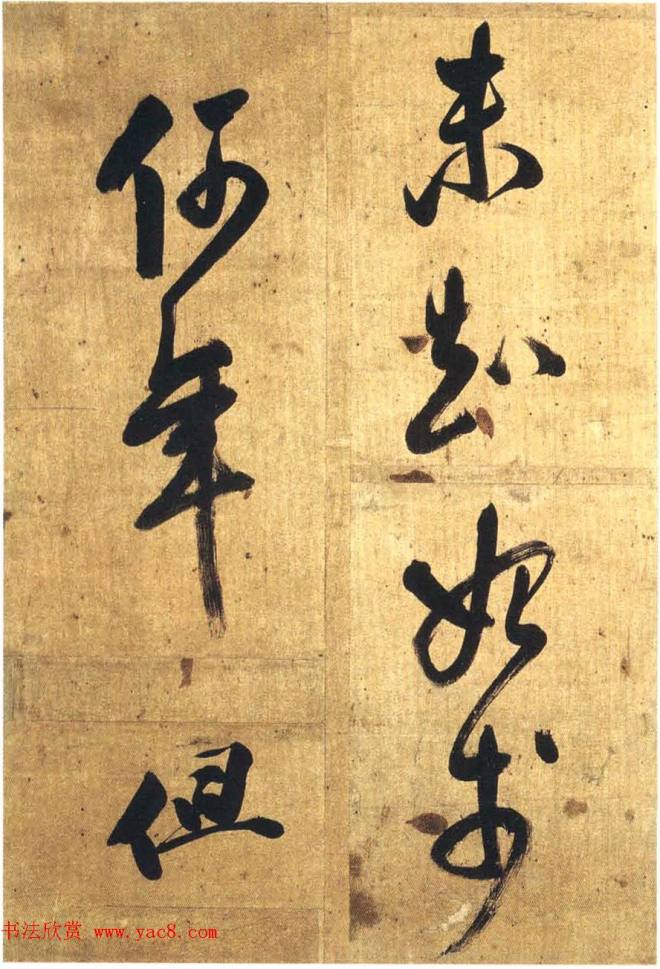 未知始於
何年但
书法欣赏 www.yac8.com